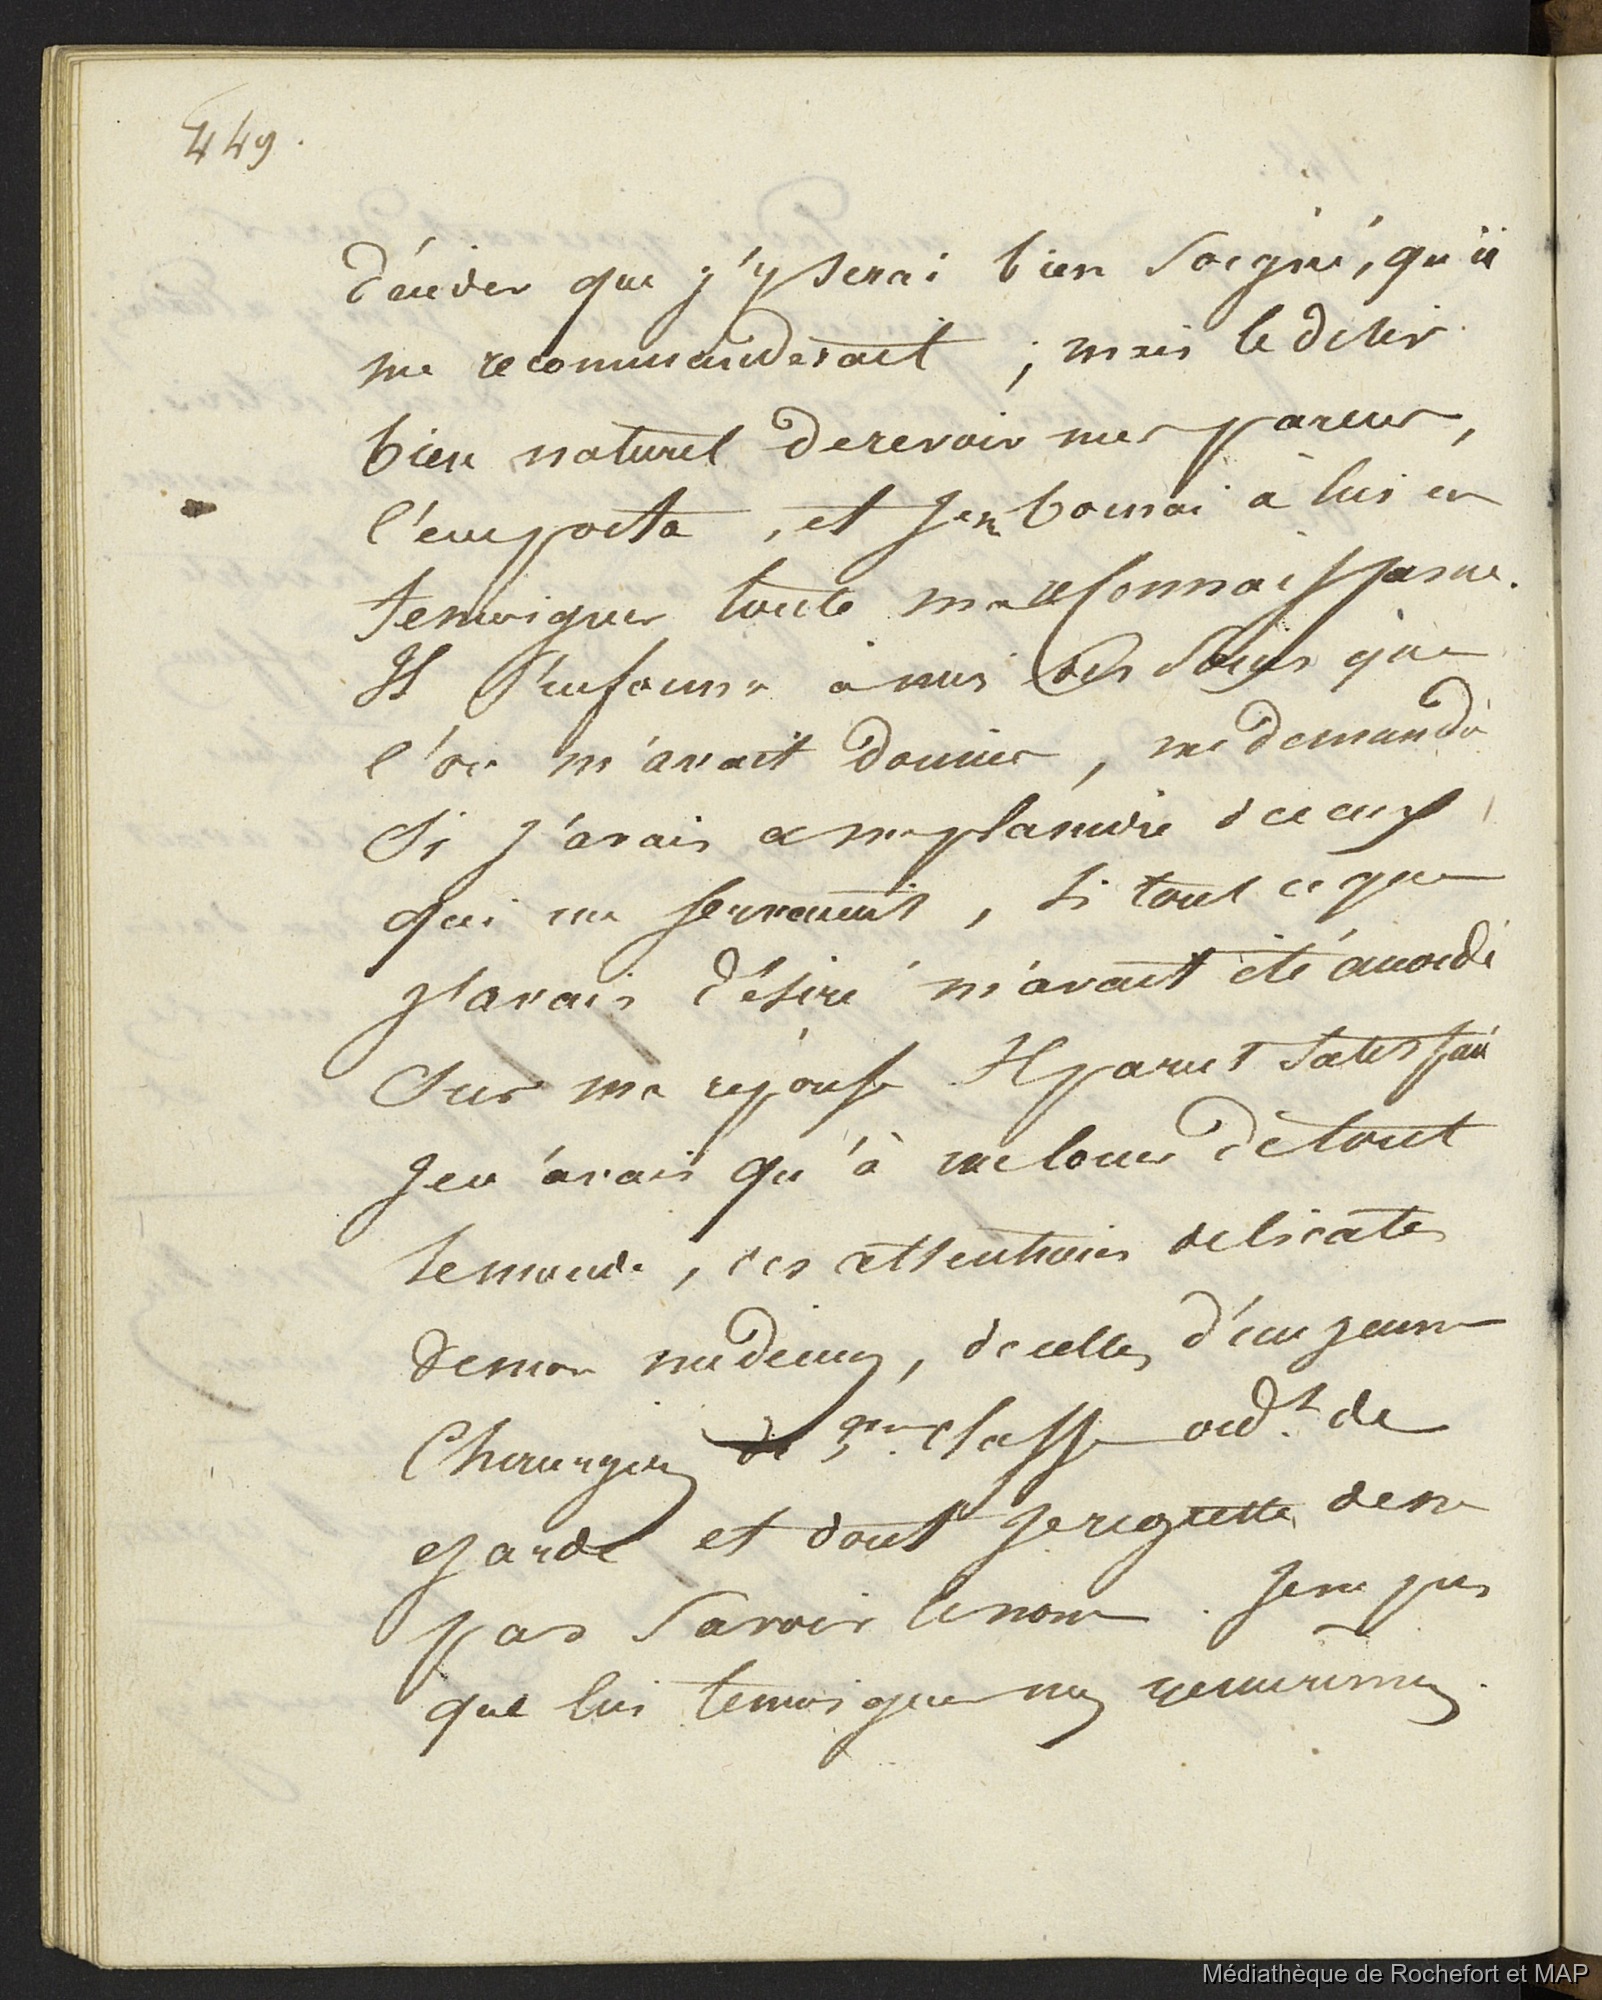 449.
décider que j'y serai bien soigné, qu'il
me recommanderait ; mais le désir
bien naturel de revoir mes parens,
l'emporta , et je me bornai à lui en
temoigner toute ma reconnaissance.
Il s'informa à moi des soins que
l'on m'avait donnés , me demanda
si j'avais a me plaindre de ceux
qui me servaient , si tout ce que
j'avais désiré m'avait été accordé
sur ma réponse Il parut satisfait
je n'avais qu'à me louer de tout
le monde , des attentions delicates
de mon medecin, de celles d'un jeune
chirurgien de 3me classe ord.t de
garde et dont je regrette de ne
pas savoir le nom . je ne puis
que lui temoigner mes
Médiathèque de Rochefort et MAP